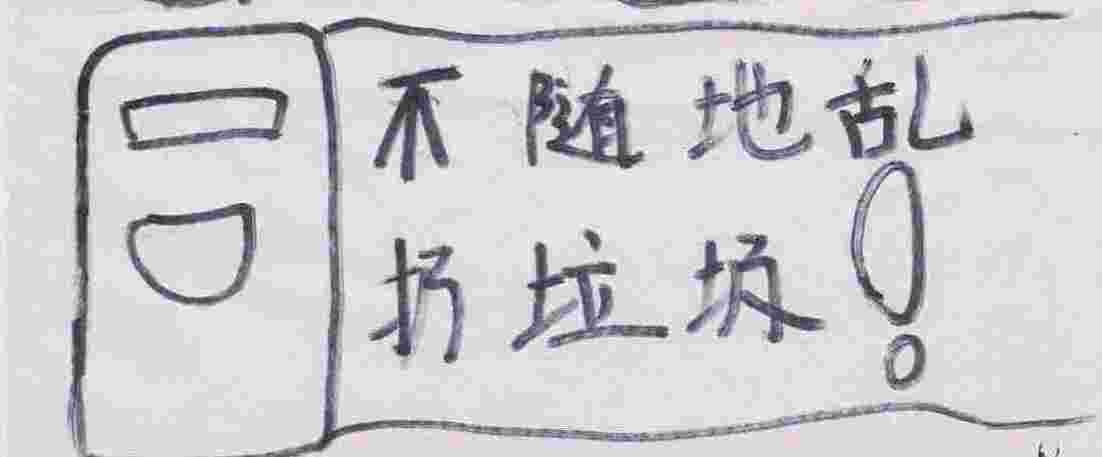 不随地乱
扔垃圾!